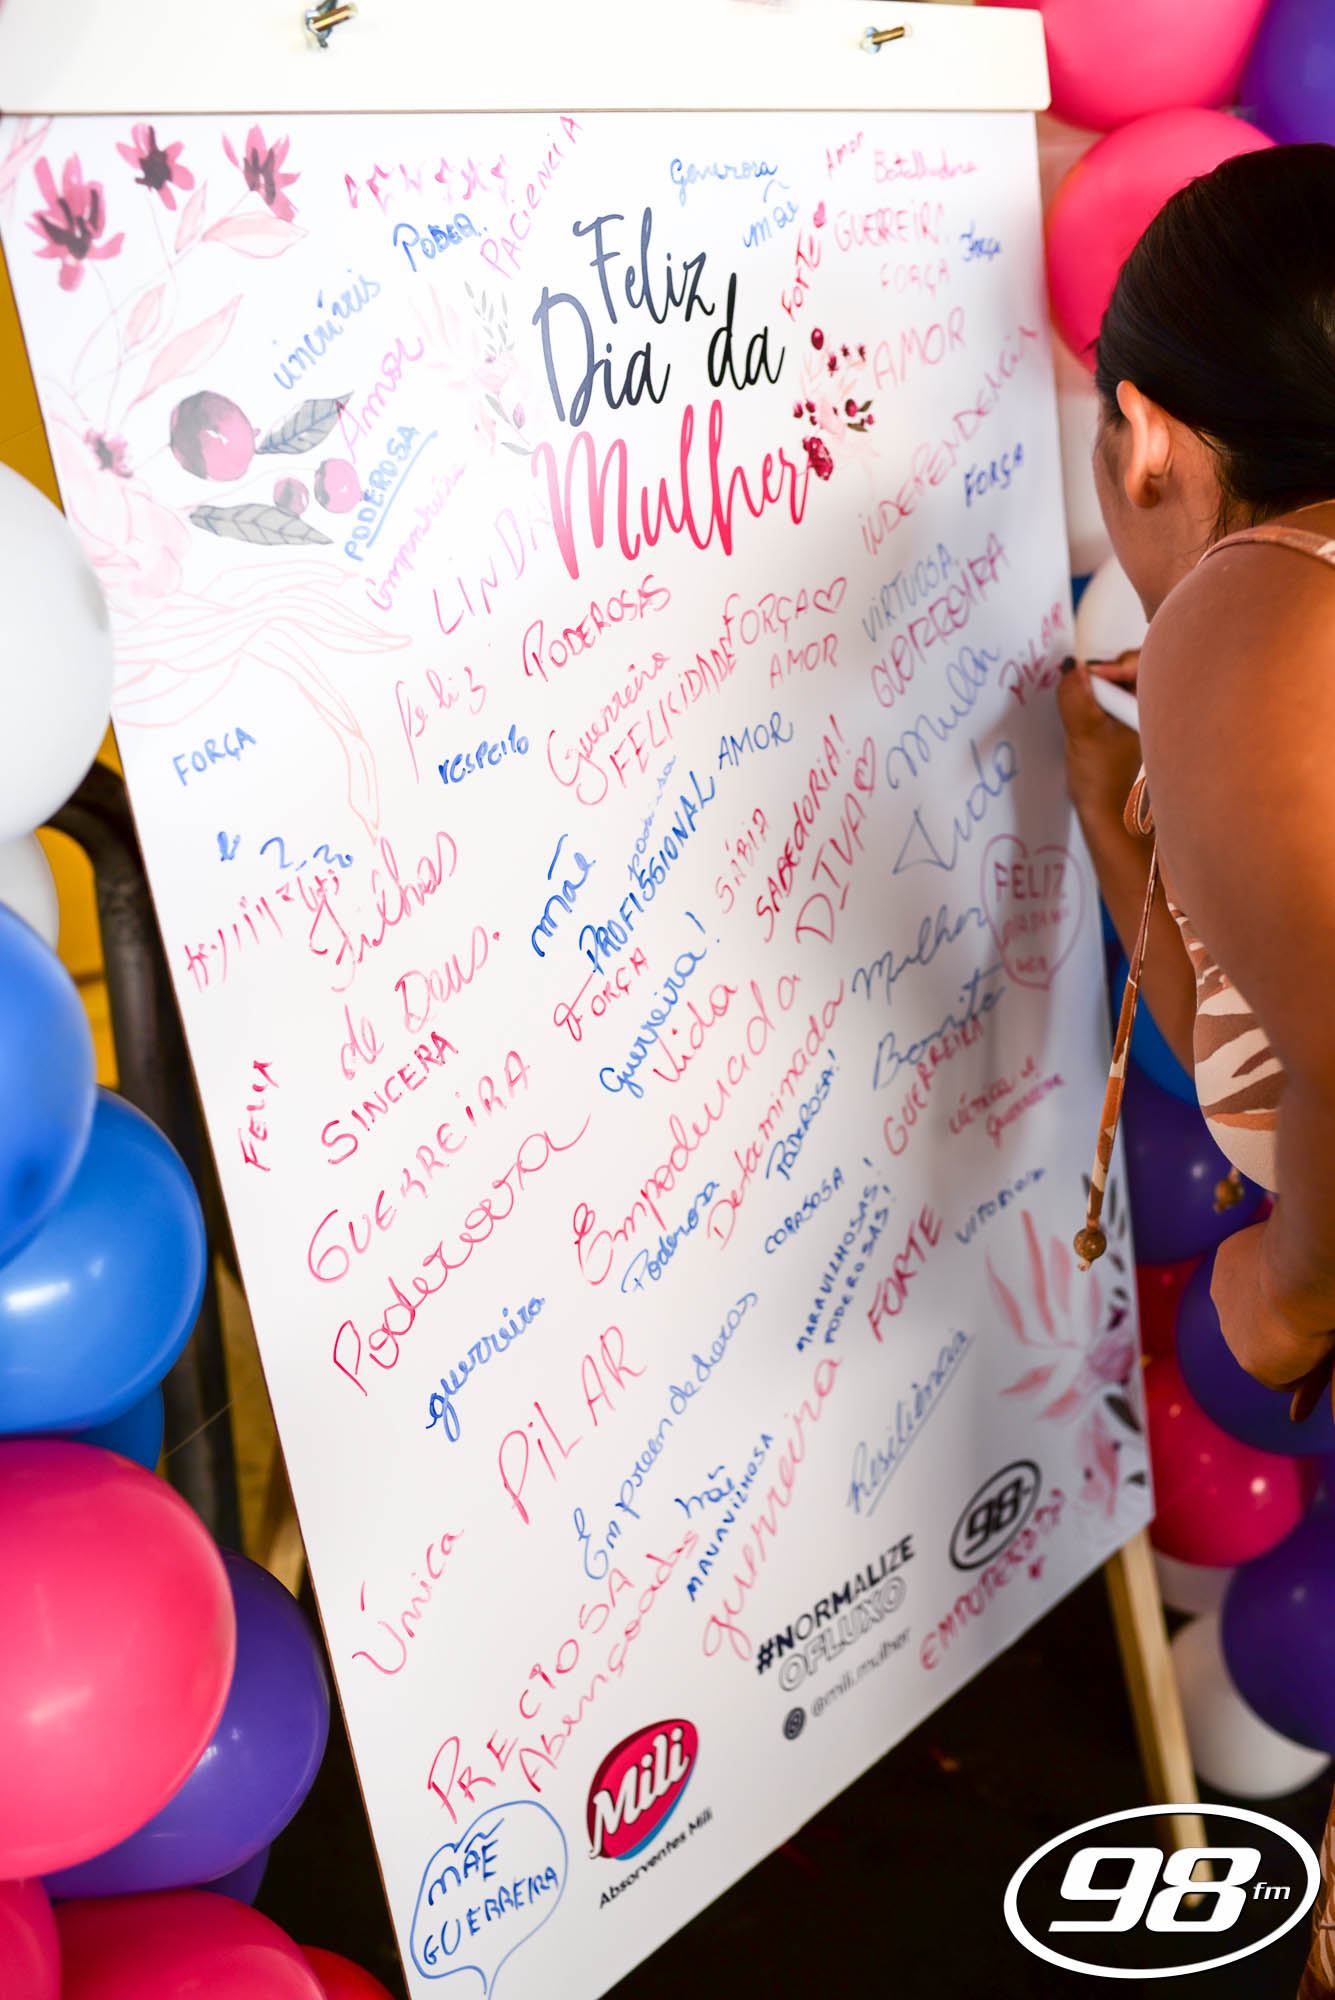 PODER.
PACIENCIA
Generosa
mãe
Amor
Batalhadora
FORTE
GUERREIRA.
FORÇA
Força
Feliz
Dia da
Mulher
incríveis
Amor
PODEROSA
Companheira
AMOR
INDEPENDENCIA
FORÇA
LINDA
Feliz
PODEROSAS
FORÇA
AMOR
VIRTUOSA
GUERREIRA
Mulher
PILAR
respeito
Guerreira
FELICIDADE
FORÇA
AMOR
Tudo
mãe
poderosa
PROFISSIONAL
SÁBIA
SABEDORIA!
DIVA
Filhas
de Deus.
FORÇA
Guerreira!
Vida
Mulher
Bonita
FELIZ
DIA DA MU
LHER
SINCERA
GUERREIRA
Poderosa
Empoderada
Determinada
Poderosa
PODEROSA!
GUERREIRA
guerreira
CORAJOSA
MARAVILHOSAS!
PODEROSAS!
FORTE
VITORIOSA
guerreira
PILAR
Empreendedoras
Resiliência
Única
Mãe
MARAVILHOSA
guerreira
PRECIOSA
Abençoadas
98
#NORMALIZE
OFLUXO
@mili.mulher
EMPODERADA
Mili
Absorventes Mili
MÃE
GUERREIRA
98 fm